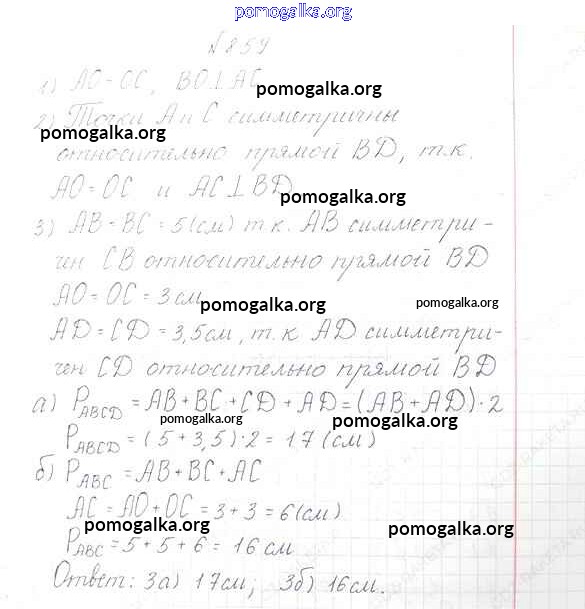 pomogalka.org
N 859
1) AO=OC, BO⊥AC
pomogalka.org
2) Точки A и C симметричны
pomogalka.org
относительно прямой BD, т.к.
AO=OC и AC⊥BD
pomogalka.org
3) AB=BC=5(см) т.к. AB симметри-
чен CB относительно прямой BD
AO=OC=3см
pomogalka.org
pomogalka.org
AD=CD=3,5см, т.к AD симметри-
чен CD относительно прямой BD
а) P_ABCD = AB+BC+CD+AD=(AB+AD)·2
pomogalka.org
pomogalka.org
P_ABCD = (5+3,5)·2 = 17(см)
б) P_ABC = AB+BC+AC
AC = AO+OC = 3+3 = 6(см)
pomogalka.org
pomogalka.org
P_ABC = 5+5+6 = 16 см
Ответ: 3а) 17см; 3б) 16см.